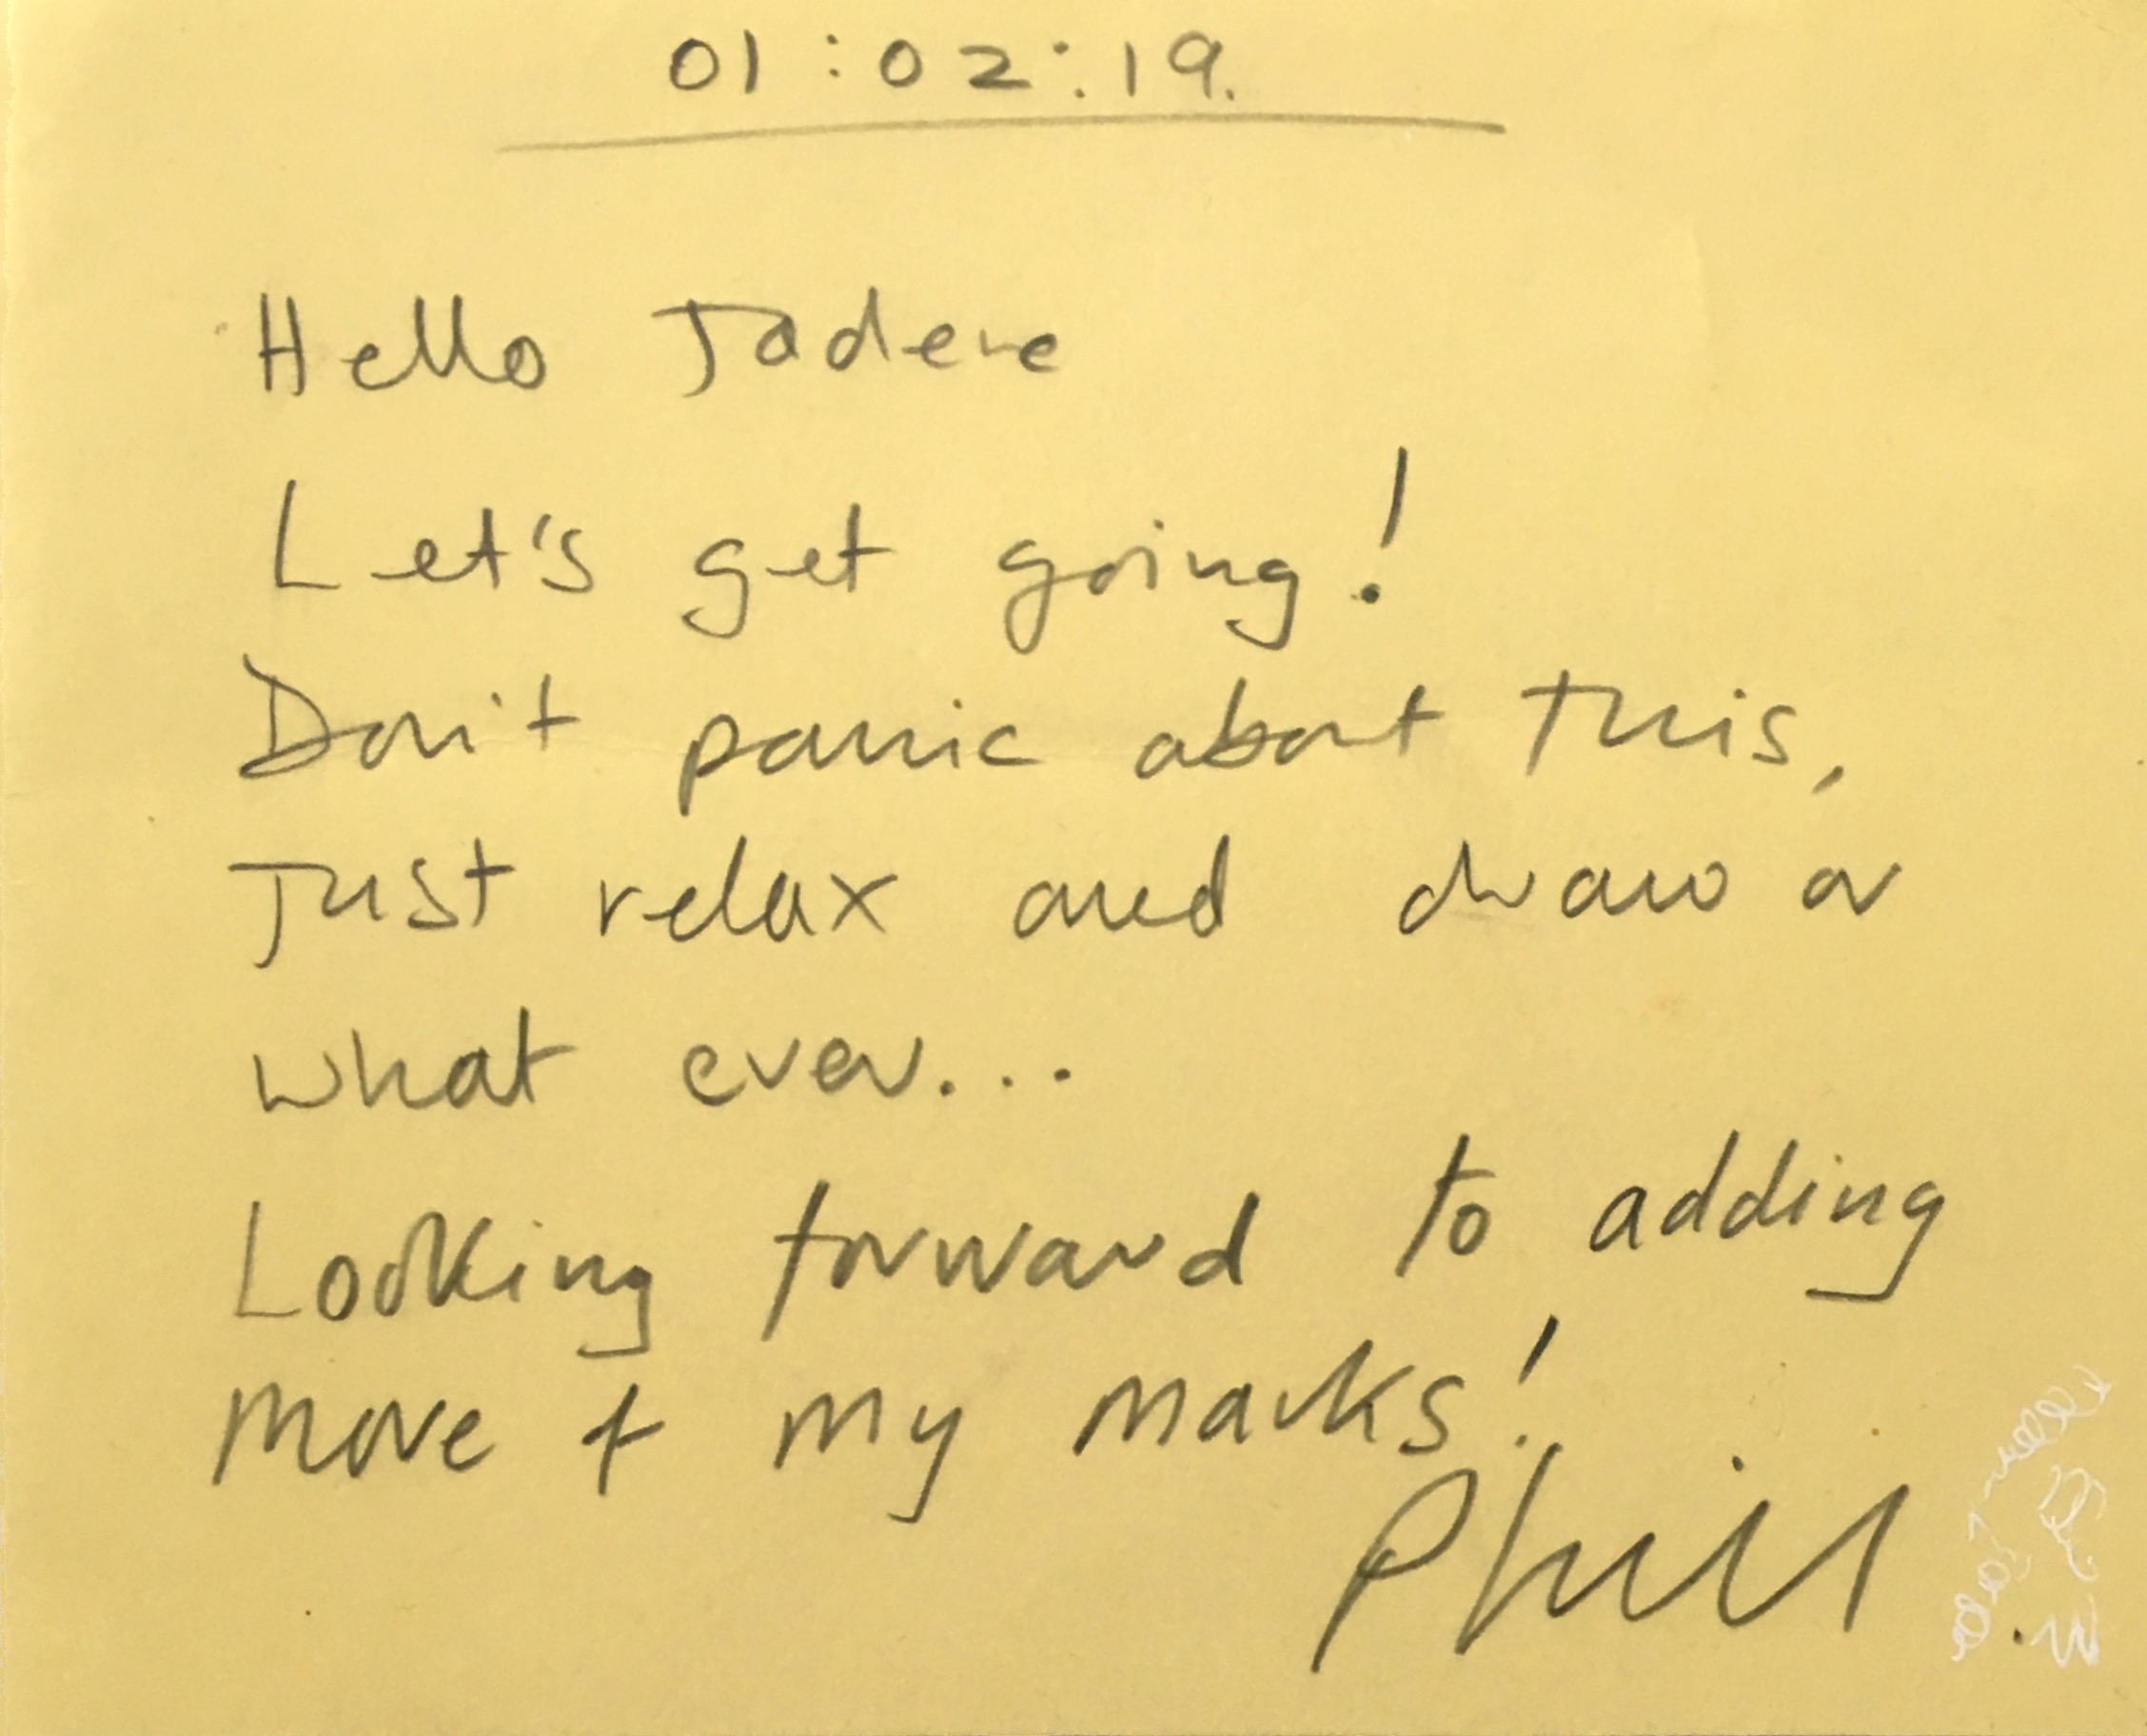 01:02:19.
Hello Jadene
Let's get going!
Don't panic about this,
Just relax and draw or
what ever...
Looking forward to adding
more + my marks!
Phil